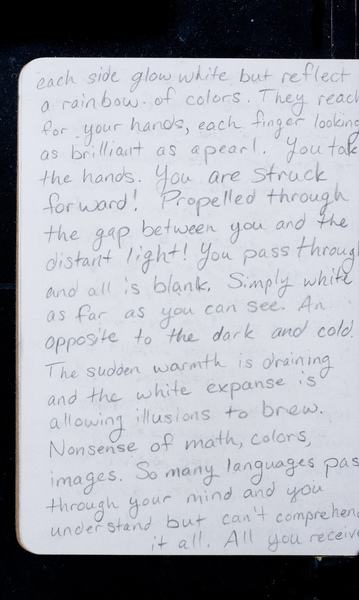 each side glow white but reflect
a rainbow of colors. They reach
for your hands, each finger looking
as brilliant as a pearl. You tak
the hands. You are struck
forward! Propelled through
the gap between you and the
distant light! You pass through
and all is blank. Simply white
as far as you can see. An
opposite to the dark and cold.
The sudden warmth is draining
and the white expanse is
allowing illusions to brew.
Nonsense of math, colors,
images. So many languages pas
through your mind and you
understand but can't comprehen
it all. All you receive